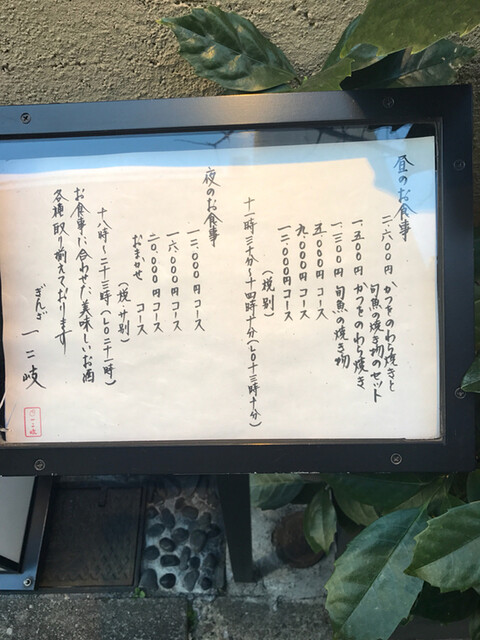 昼のお食事
二、六〇〇円 かつをのわら焼きと
旬魚の焼き物のセット
一、五〇〇円 かつをのわら焼き
一、三〇〇円 旬魚の焼き物
五、〇〇〇円 コース
九、〇〇〇円 コース
一二、〇〇〇円 コース
（税別）
十一時三十分〜十四時十分（L〇十三時十分）
夜のお食事
一二、〇〇〇円 コース
一六、〇〇〇円 コース
二〇、〇〇〇円 コース
おまかせ コース
（税サ別）
十八時〜二十三時（L〇二十一時）
お食事に合わせた美味しいお酒
各種取り揃えております
ぎんざ 一二岐